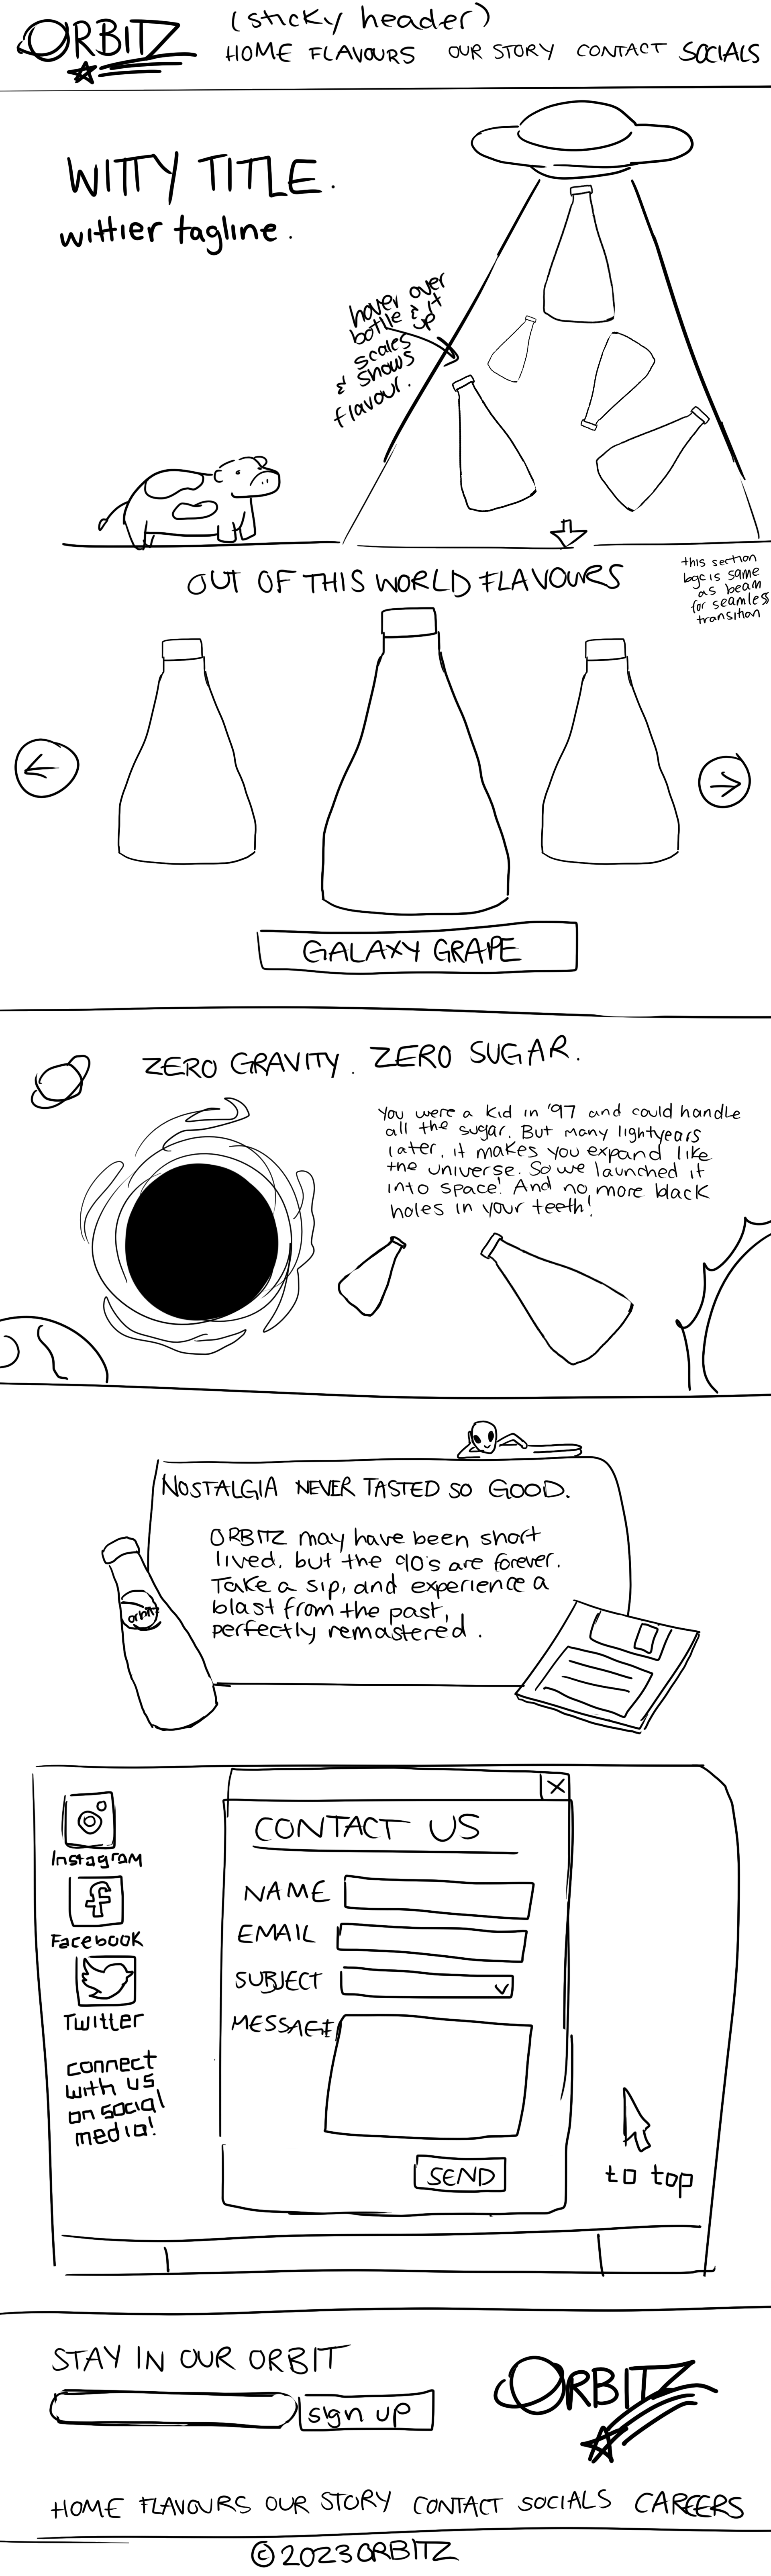 ORBITZ
(sticky header)
HOME FLAVOURS OUR STORY CONTACT SOCIALS
WITTY TITLE.
wittier tagline.
hover over
bottle & it
scales up
& shows
flavour.
OUT OF THIS WORLD FLAVOURS
this section
bgc is same
as beam
for seamless
transition
GALAXY GRAPE
ZERO GRAVITY. ZERO SUGAR.
You were a kid in '97 and could handle
all the sugar. But many lightyears
later, it makes you expand like
the universe. So we launched it
into space! And no more black
holes in your teeth!
NOSTALGIA NEVER TASTED SO GOOD.
ORBITZ may have been short
lived, but the 90's are forever.
Take a sip, and experience a
blast from the past,
perfectly remastered.
orbitz
Instagram
Facebook
Twitter
connect
with us
on social
media!
X
CONTACT US
NAME
EMAIL
SUBJECT
MESSAGE
SEND
to top
STAY IN OUR ORBIT
sign up
ORBITZ
HOME FLAVOURS OUR STORY CONTACT SOCIALS CAREERS
© 2023 ORBITZ